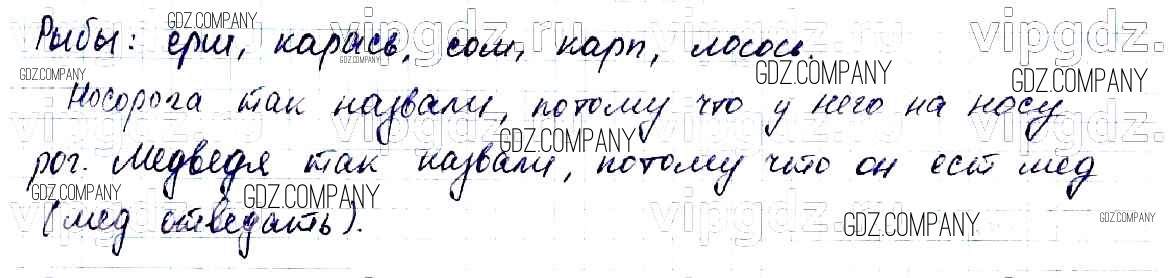 Рыбы: ерш, карась, сом, карп, лосось.
Носорога так назвали, потому что у него на носу
рог. Медведя так назвали, потому что он ест мед
(мед отведать).
GDZ.COMPANY
GDZ.COMPANY
GDZ.COMPANY
GDZ.COMPANY
GDZ.COMPANY
GDZ.COMPANY
GDZ.COMPANY
GDZ.COMPANY
GDZ.COMPANY
GDZ.COMPANY
vipgdz.ru
vipgdz.ru
vipgdz.
vipgdz.ru
vipgdz.
vipgdz.ru
vipgdz.ru